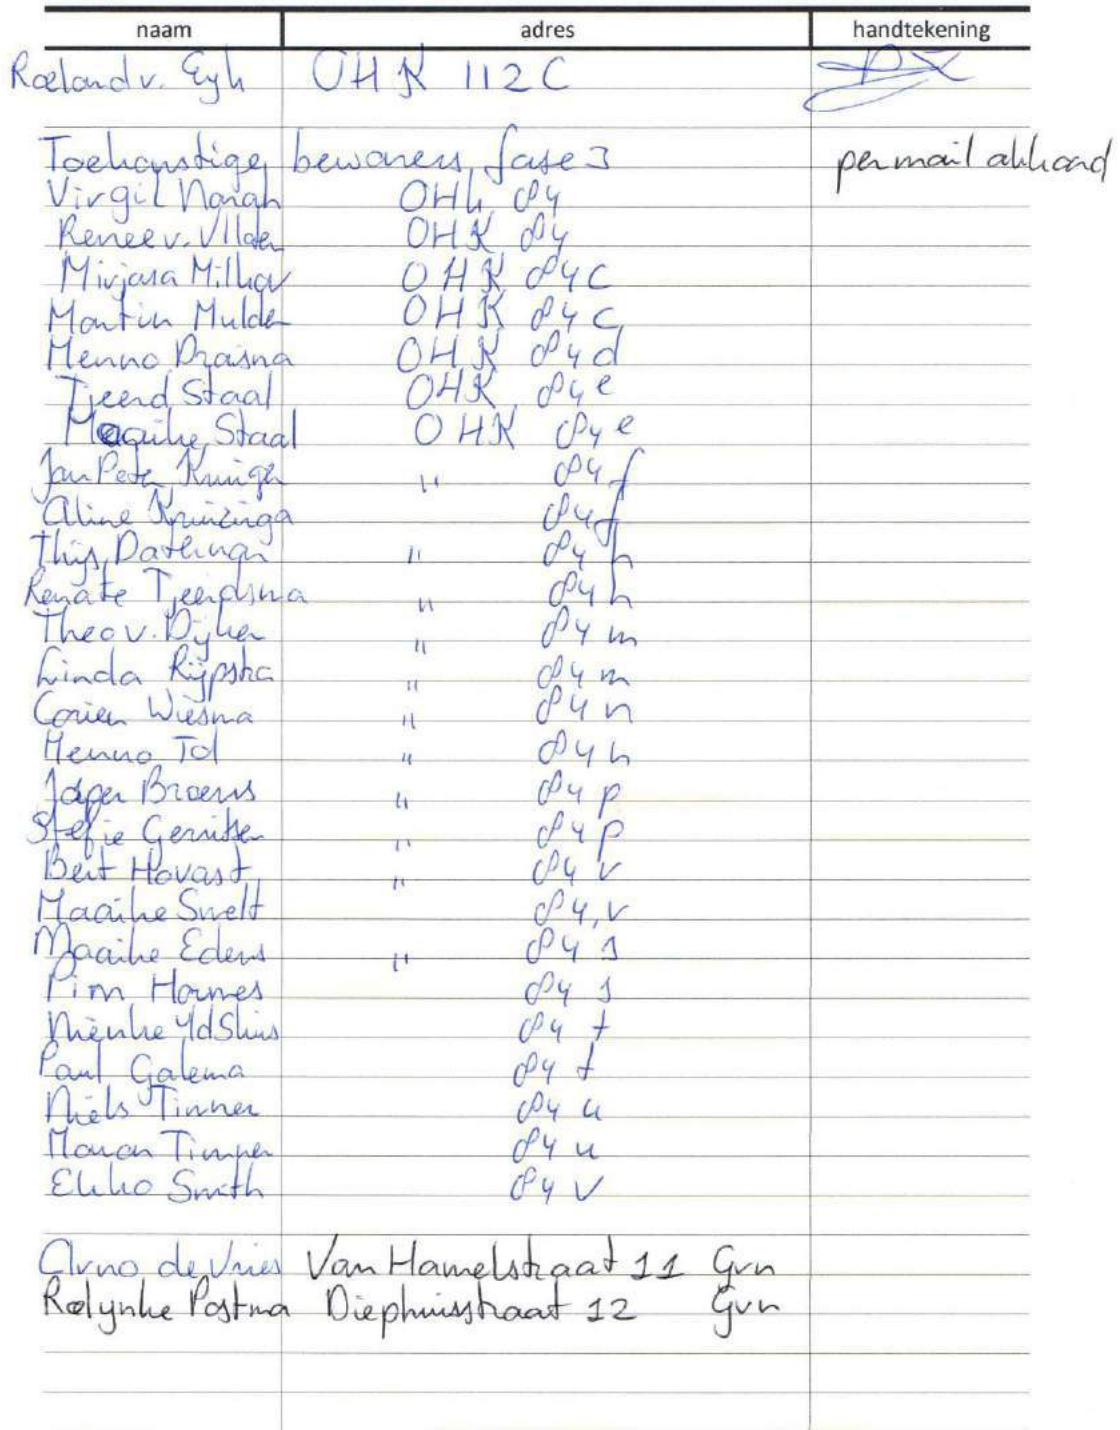 naam adres handtekening
Roeland v. Eyk OHK 112C
Toekomstige bewoners fase 3 per mail akkoord
Virgil OHK 84
Renee v. OHK 84
Mirjana OHK 84C
Martin Mulder OHK 84C
Menno OHK 84d
Tjeerd Staal OHK 84e
Maaike Staal OHK 84e
Jan Peter " 84f
Aline Kruizinga 84f
Thijs " 84h
Renate Tjeerdsma " 84h
Theo v. Dijken " 84m
Linda Rijpstra " 84m
Corien Wiesma " 84n
Menno Tol " 84n
Broens " 84p
Stefie Gerritsen " 84p
Bert Hovast " 84v
Maaike Smelt 84,v
Maaike Edens " 84s
Pim Harmes 84s
Nienke 84t
Paul Galema 84t
Niels Timmer 84u
Timmer 84u
Ekko Smith 84v
Arno de Vries Van Hamelstraat 11 Grn
Roelynke Postma Diephuisstraat 12 Grn